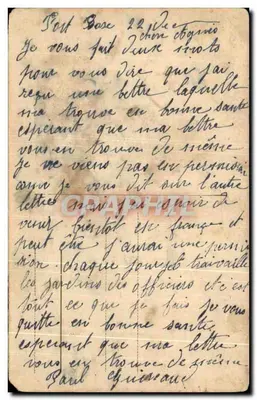 Port Base 22 Dec
Je vous fait deux mots
pour vous dire que j'ai
reçu une lettre laquelle
ma trouve en bonne sante
esperant que ma lettre
vous en trouve de meme
je ne viens pas en permission
comme je vous dit sur l'autre
lettre
venir bientot en france et
peut etre j'aurai une permis
sion chaque jour je travaille
les jardins des officiers et c'est
tout ce que je fais je vous
quitte en bonne sante
esperant que ma lettre
vous en trouve de meme
Paul